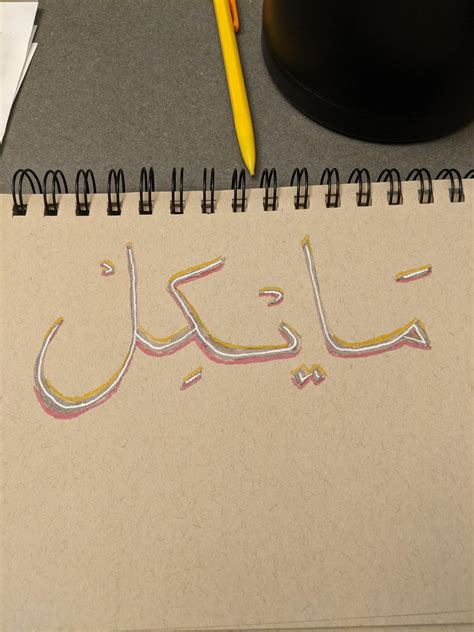 مَايْكِلْ